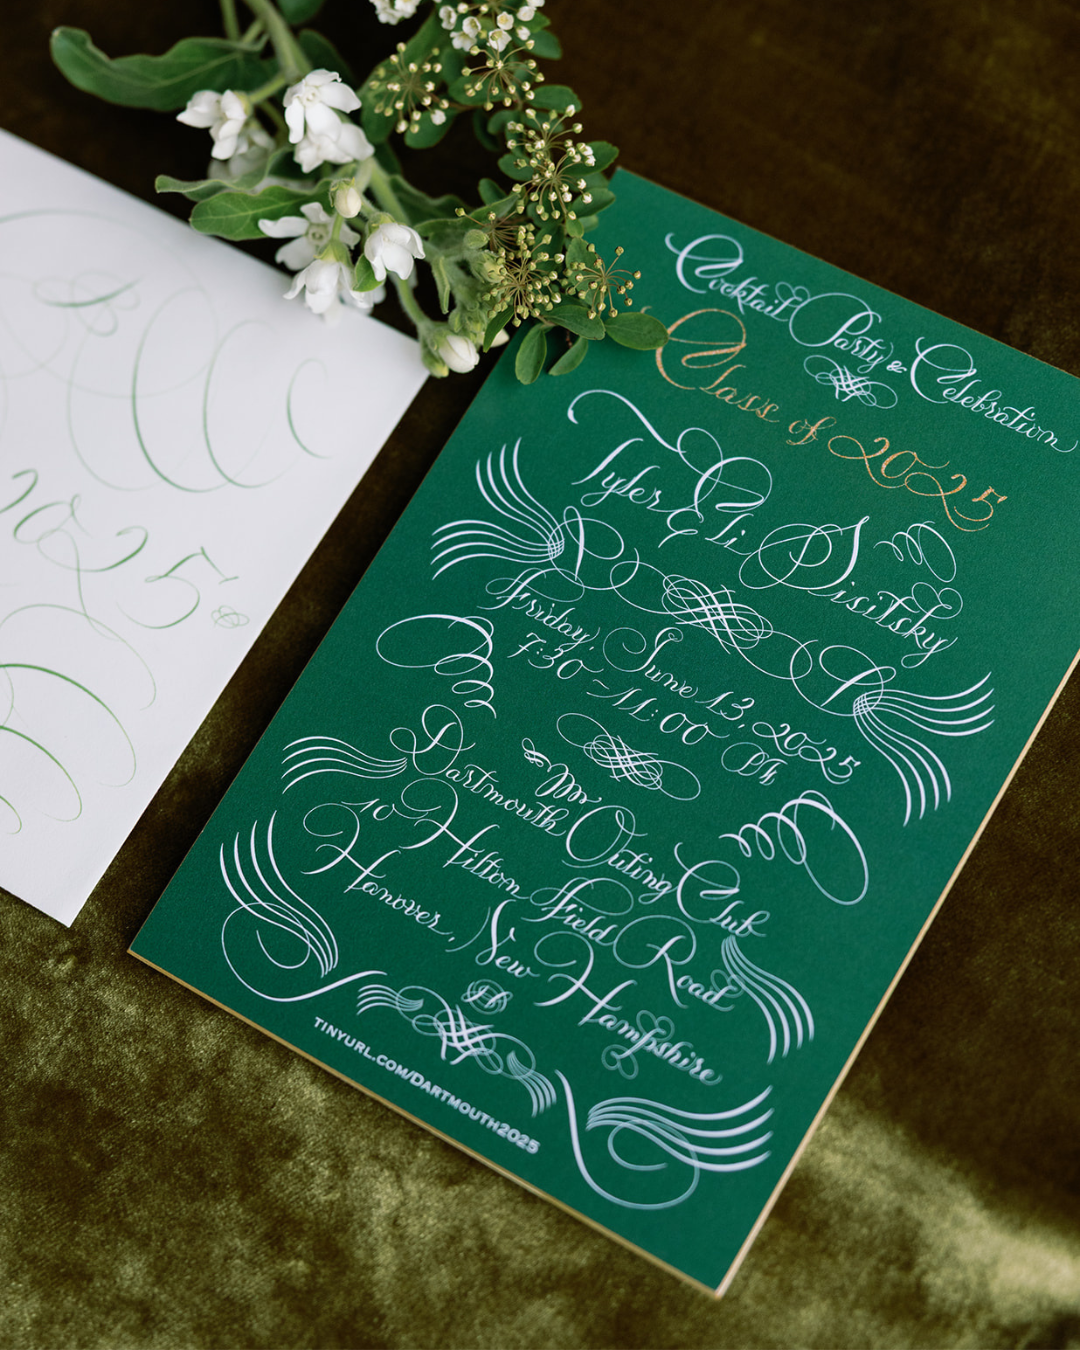 Cocktail Party & Celebration
Class of 2025
Tyler Eli Disitsky
Friday, June 13, 2025
7:30 – 11:00 PM
Dartmouth Outing Club
10 Hilton Field Road
Hanover, New Hampshire
TINYURL.COM/DARTMOUTH2025
2025